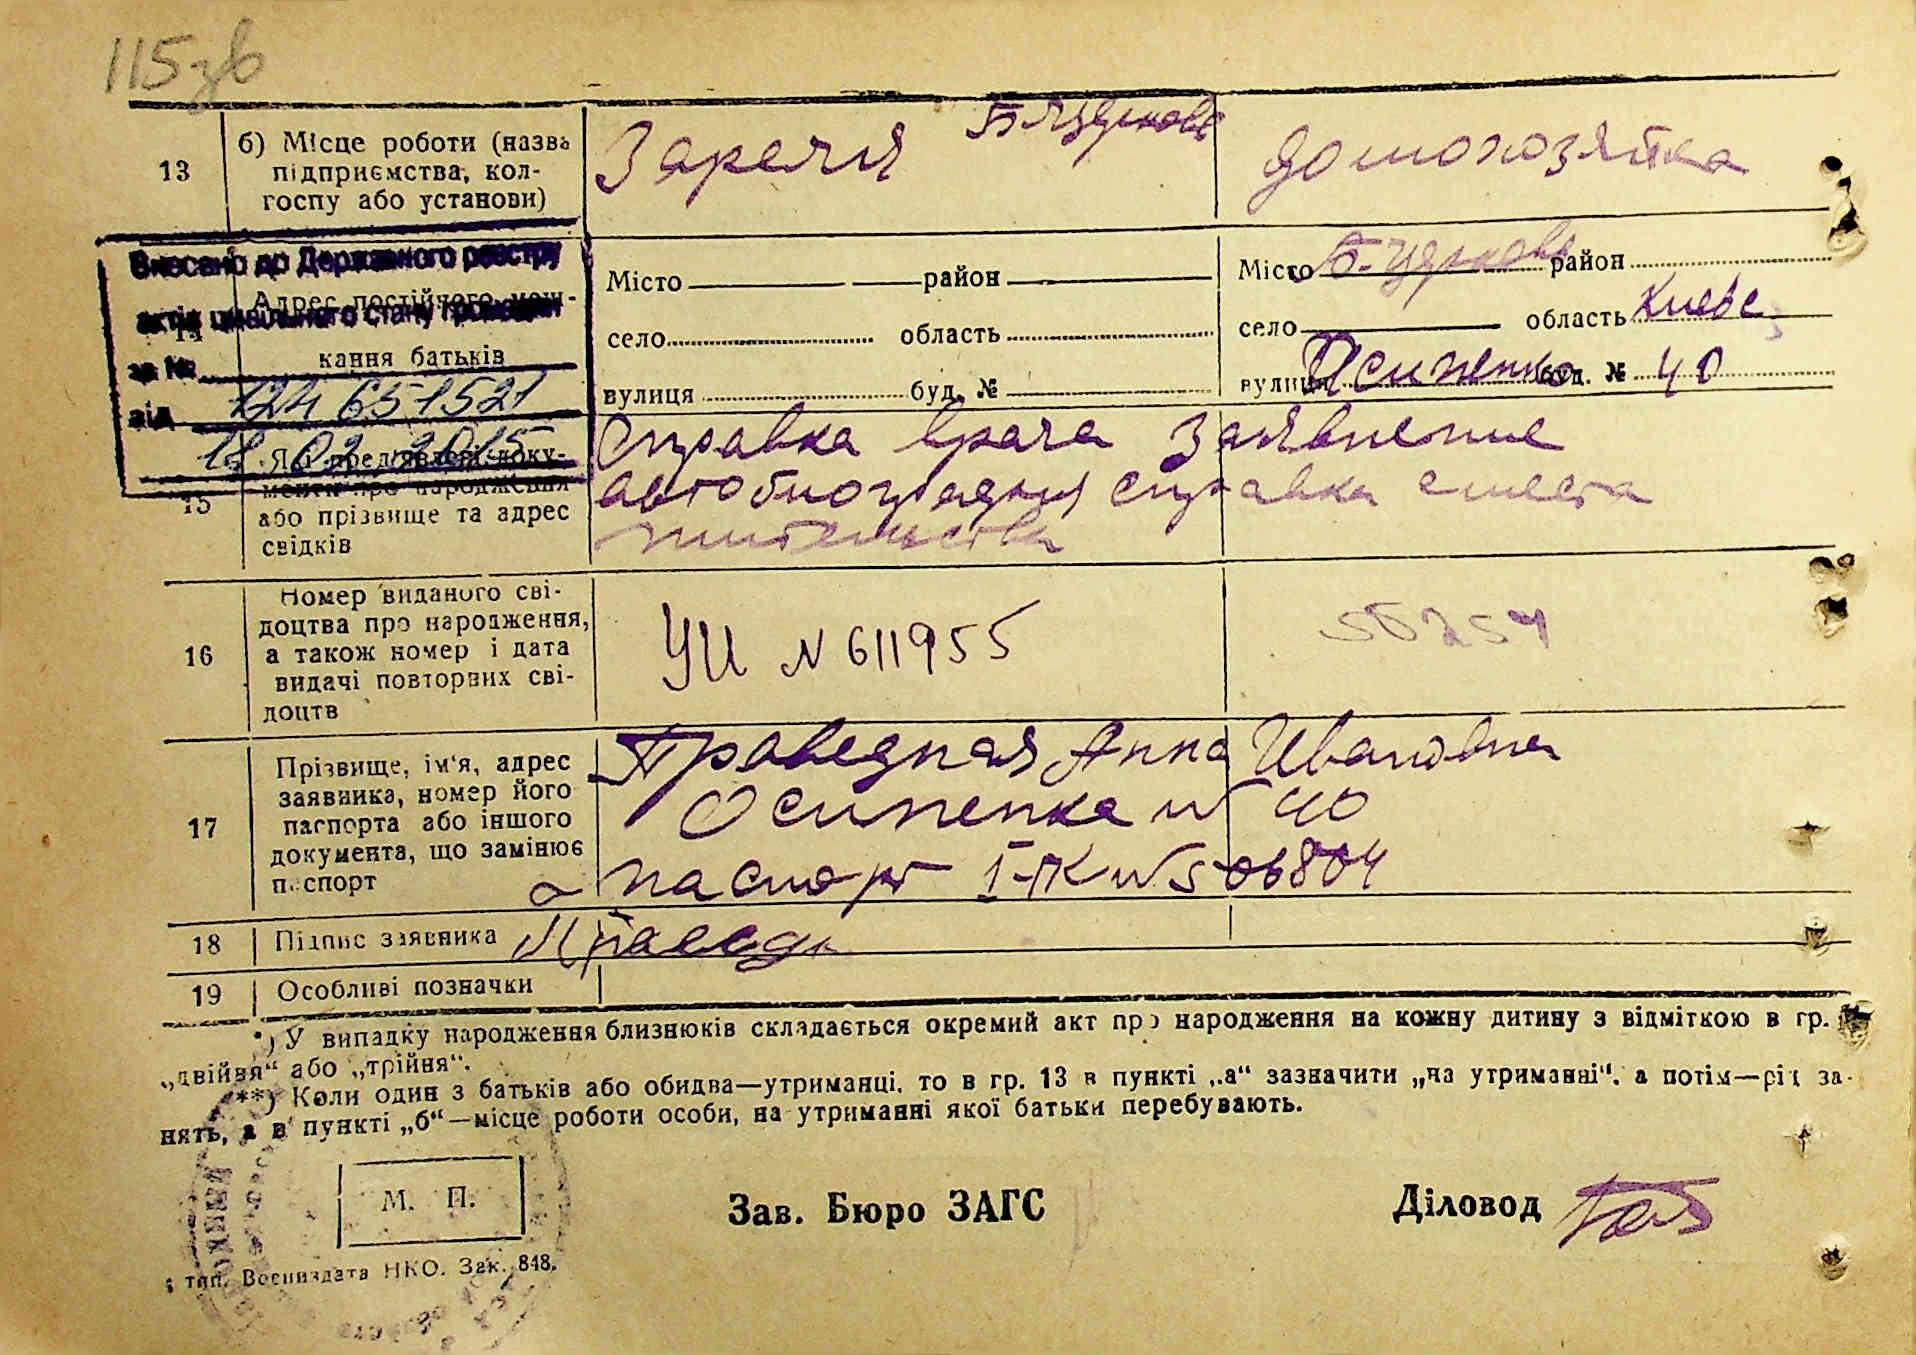 115зв
13
б) Місце роботи (назва
підприємства, кол-
госпу або установи)
Б Церковь
домохозяйка
Внесено до Державного реєстру
актів цивільного стану громадян
за № 124 651521
від 18 02 2015
Адрес постійного меш-
кання батьків
Місто район
село область
вулиця буд. №
Місто Б-Церковь район
село область Киевс
вулиця Осипенко буд. № 40
15
Які пред'явлені доку-
менти про народження
або прізвище та адрес
свідків
Справка врача Заявление
автобиография справка с места
жительства
16
Номер виданого сві-
доцтва про народження,
а також номер і дата
видачі повторних сві-
доцтв
УИ № 611955
17
Прізвище, ім'я, адрес
заявника, номер його
паспорта або іншого
документа, що замінює
паспорт
Праведная Анна Ивановна
Осипенка № 40
паспорт I-ПК № 506804
18
Підпис заявника
19
Особливі позначки
*) У випадку народження близнюків складається окремий акт про народження на кожну дитину з відміткою в гр.
„двійня“ або „трійня“.
**) Коли один з батьків або обидва—утриманці, то в гр. 13 в пункті „а“ зазначити „на утриманні“, а потім—рід за-
нять, а в пункті „б“—місце роботи особи, на утриманні якої батьки перебувають.
М. П.
Зав. Бюро ЗАГС
Діловод
тип. Воениздата НКО. Зак. 848.